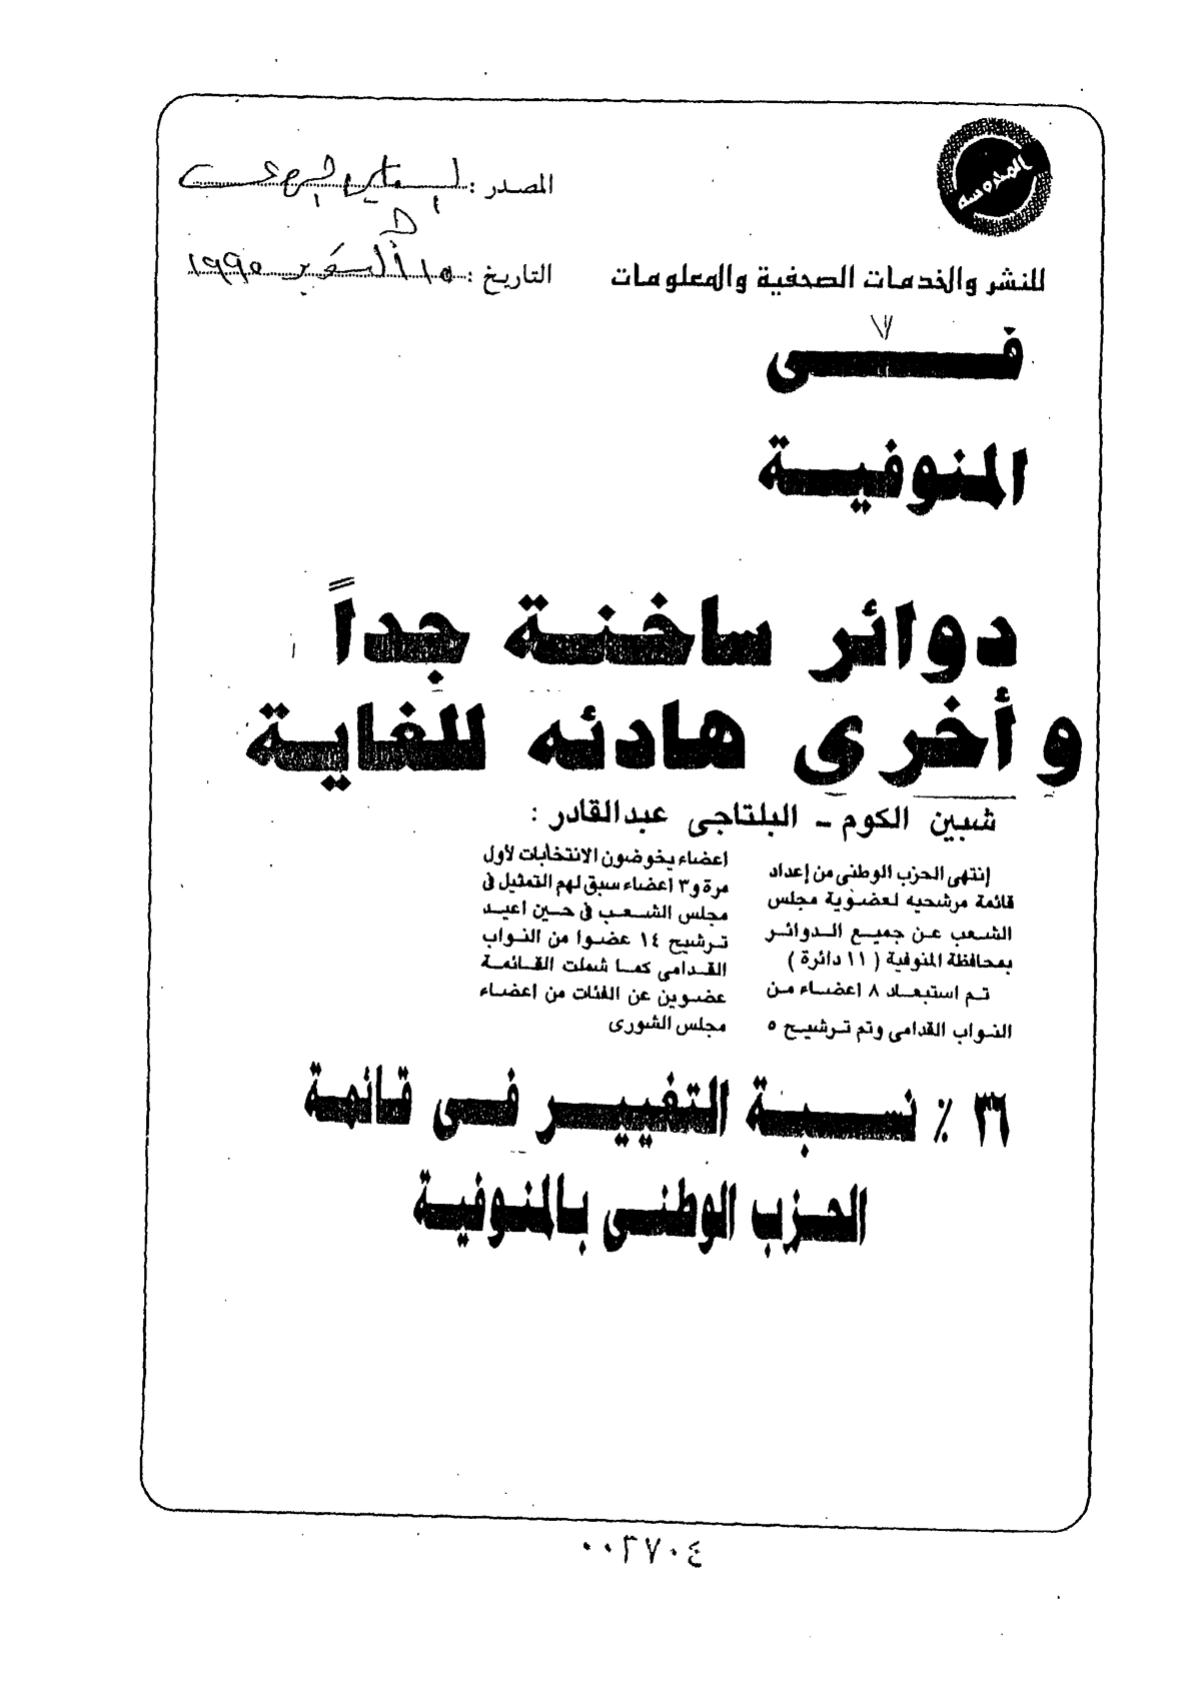 المحروسة
المصدر :
للنشر والخدمات الصحفية والمعلومات
التاريخ : ١٥ أكتوبر ١٩٩٥
فى
المنوفية
دوائر ساخنة جداً
و أخرى هادئه للغاية
شبين الكوم - البلتاجى عبدالقادر :
إنتهى الحزب الوطنى من إعداد
قائمة مرشحيه لعضوية مجلس
الشعب عن جميع الدوائر
بمحافظة المنوفية ( ١١ دائرة )
تم استبعاد ٨ اعضاء من
النواب القدامى وتم ترشيح ٥
اعضاء يخوضون الانتخابات لأول
مرة و٣ اعضاء سبق لهم التمثيل فى
مجلس الشعب فى حين اعيد
ترشيح ١٤ عضوا من النواب
القدامى كما شملت القائمة
عضوين عن الفئات من اعضاء
مجلس الشورى
٣٦ ٪ نسبة التغيير فى قائمة
الحزب الوطنى بالمنوفية
٠٠٣٧٠٤